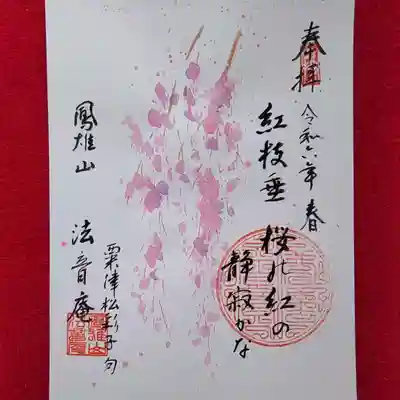 奉拝
令和六年 春
紅枝垂
桜の紅の
静寂かな
粟津松彩子 句
鳳雄山
法音庵